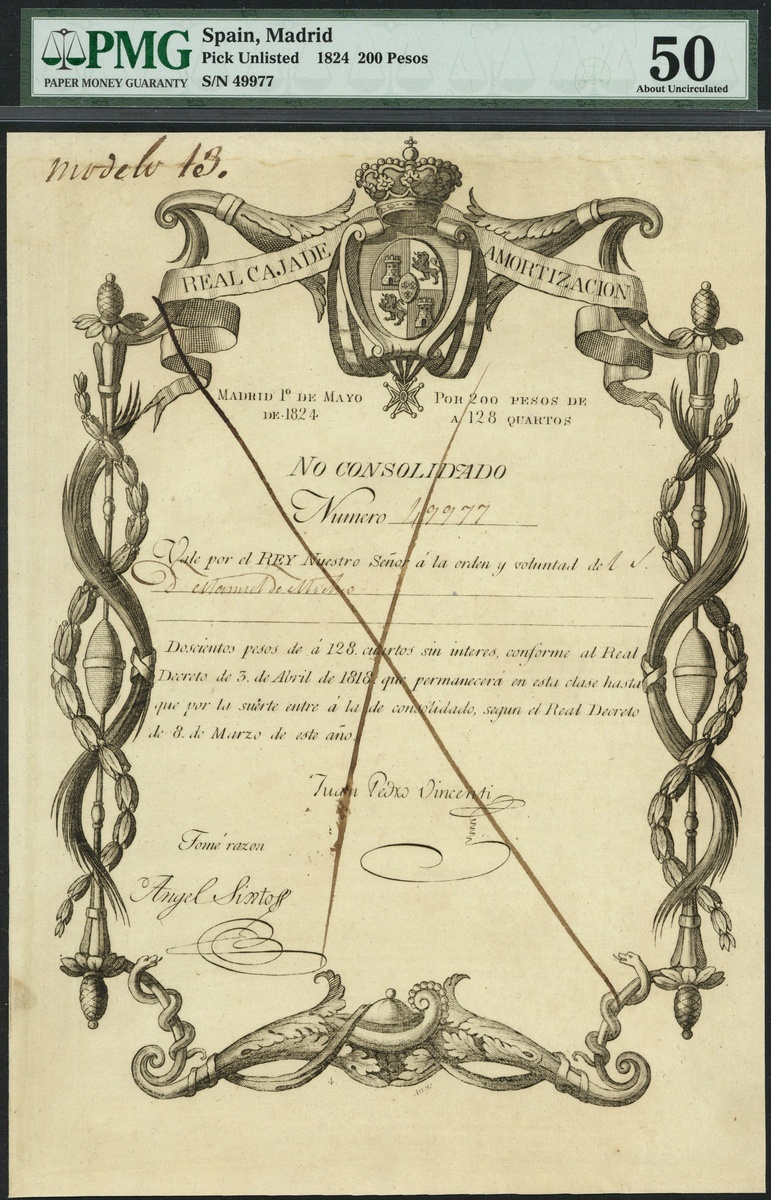 PMG
PAPER MONEY GUARANTY
Spain, Madrid
Pick Unlisted 1824 200 Pesos
S/N 49977
50
About Uncirculated
modelo 13.
REAL CAJA DE AMORTIZACION
MADRID 1º DE MAYO DE 1824
POR 200 PESOS DE A 128 QUARTOS
NO CONSOLIDADO
Numero 49977
Vale por el REY Nuestro Señor á la orden y voluntad de
Doscientos pesos de á 128. cuartos sin interes, conforme al Real
Decreto de 3. de Abril de 1818. que permanecerá en esta clase hasta
que por la suèrte entre á la de consolidado, segun el Real Decreto
de 8. de Marzo de este año.
Juan Pedro Vincenti
Tomé razon
Angel Sixto
4.